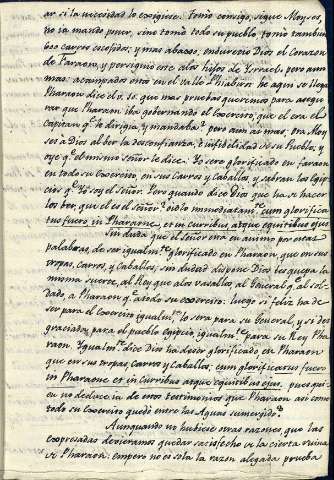 ar si la necesidad lo exigiese. Tomó consigo, sigue Moyses,
no la mando pner, sino tomó todo su pueblo, tomó tambien
bos carros escojidos; y mas abaxo, endurecio Dios el Corazon
de Faraon, y persiguió este a los hijos de Ysrrael, pero aun
mas: acampados estos en el valle Phiahirot he aqui se llega
Pharaon dice el v. 10 que mas pruebas queremos para asegu
rar que Pharaon iba gobernando el Exercito; que él era el
Capitan q.e le dirigia, y mandaba? pero aun ai mas: ora Moy
ses a Dios al ber la desconfianza, e infidelidad de su Pueblo; y
oye q.e el mismo señor le dice. Yo seré glorificado en faraon
en todo su Exercito, en sus carros y Caballos, y sabran los Egip
cios q.e Yo soy el Señor. Pero quando dice Dios que ha de hacer
los ber, que el es el Señor? oidlo immediatam.te cum glorifica
tus fuero, in Pharaone, et in curribus, atque equitibus ejus
sin duda que el Señor era en animo por estas
palabras, de ser igualm.te glorificado en Pharaon, que en sus
tropas, Carros, y Caballos; sin dudad dispone Dios les quepa la
misma suerte, al Rey que a los vasallos, al General q.e al sol-
dado, a Pharaon q.e a todo su exercito: luego si feliz ha de
ser para el Exercito igualm.te lo sera para su General, y si des
graciado, para el pueblo Egipcio igualm.te para su Rey Pha
raon. Ygualm.te dice Dios ha de ser glorificado en Pharaon
que en sus tropas Carros y Caballos; cum glorificatus fuero
in Pharaone et in Curribus atque equitibus ejus, pues qui
en no deduce de estos testimonios que Pharaon asi como
todo su Exercito quedó entre las Aguas sumerjido?
Aunquando no hubiese otras razones, que las
expresadas devieramos quedar satisfechos de la cierta ruina
de Pharaon: empero no es sola la razon alegada prueba